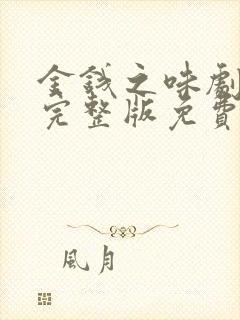 金錢之味劇
完整版免費
風月